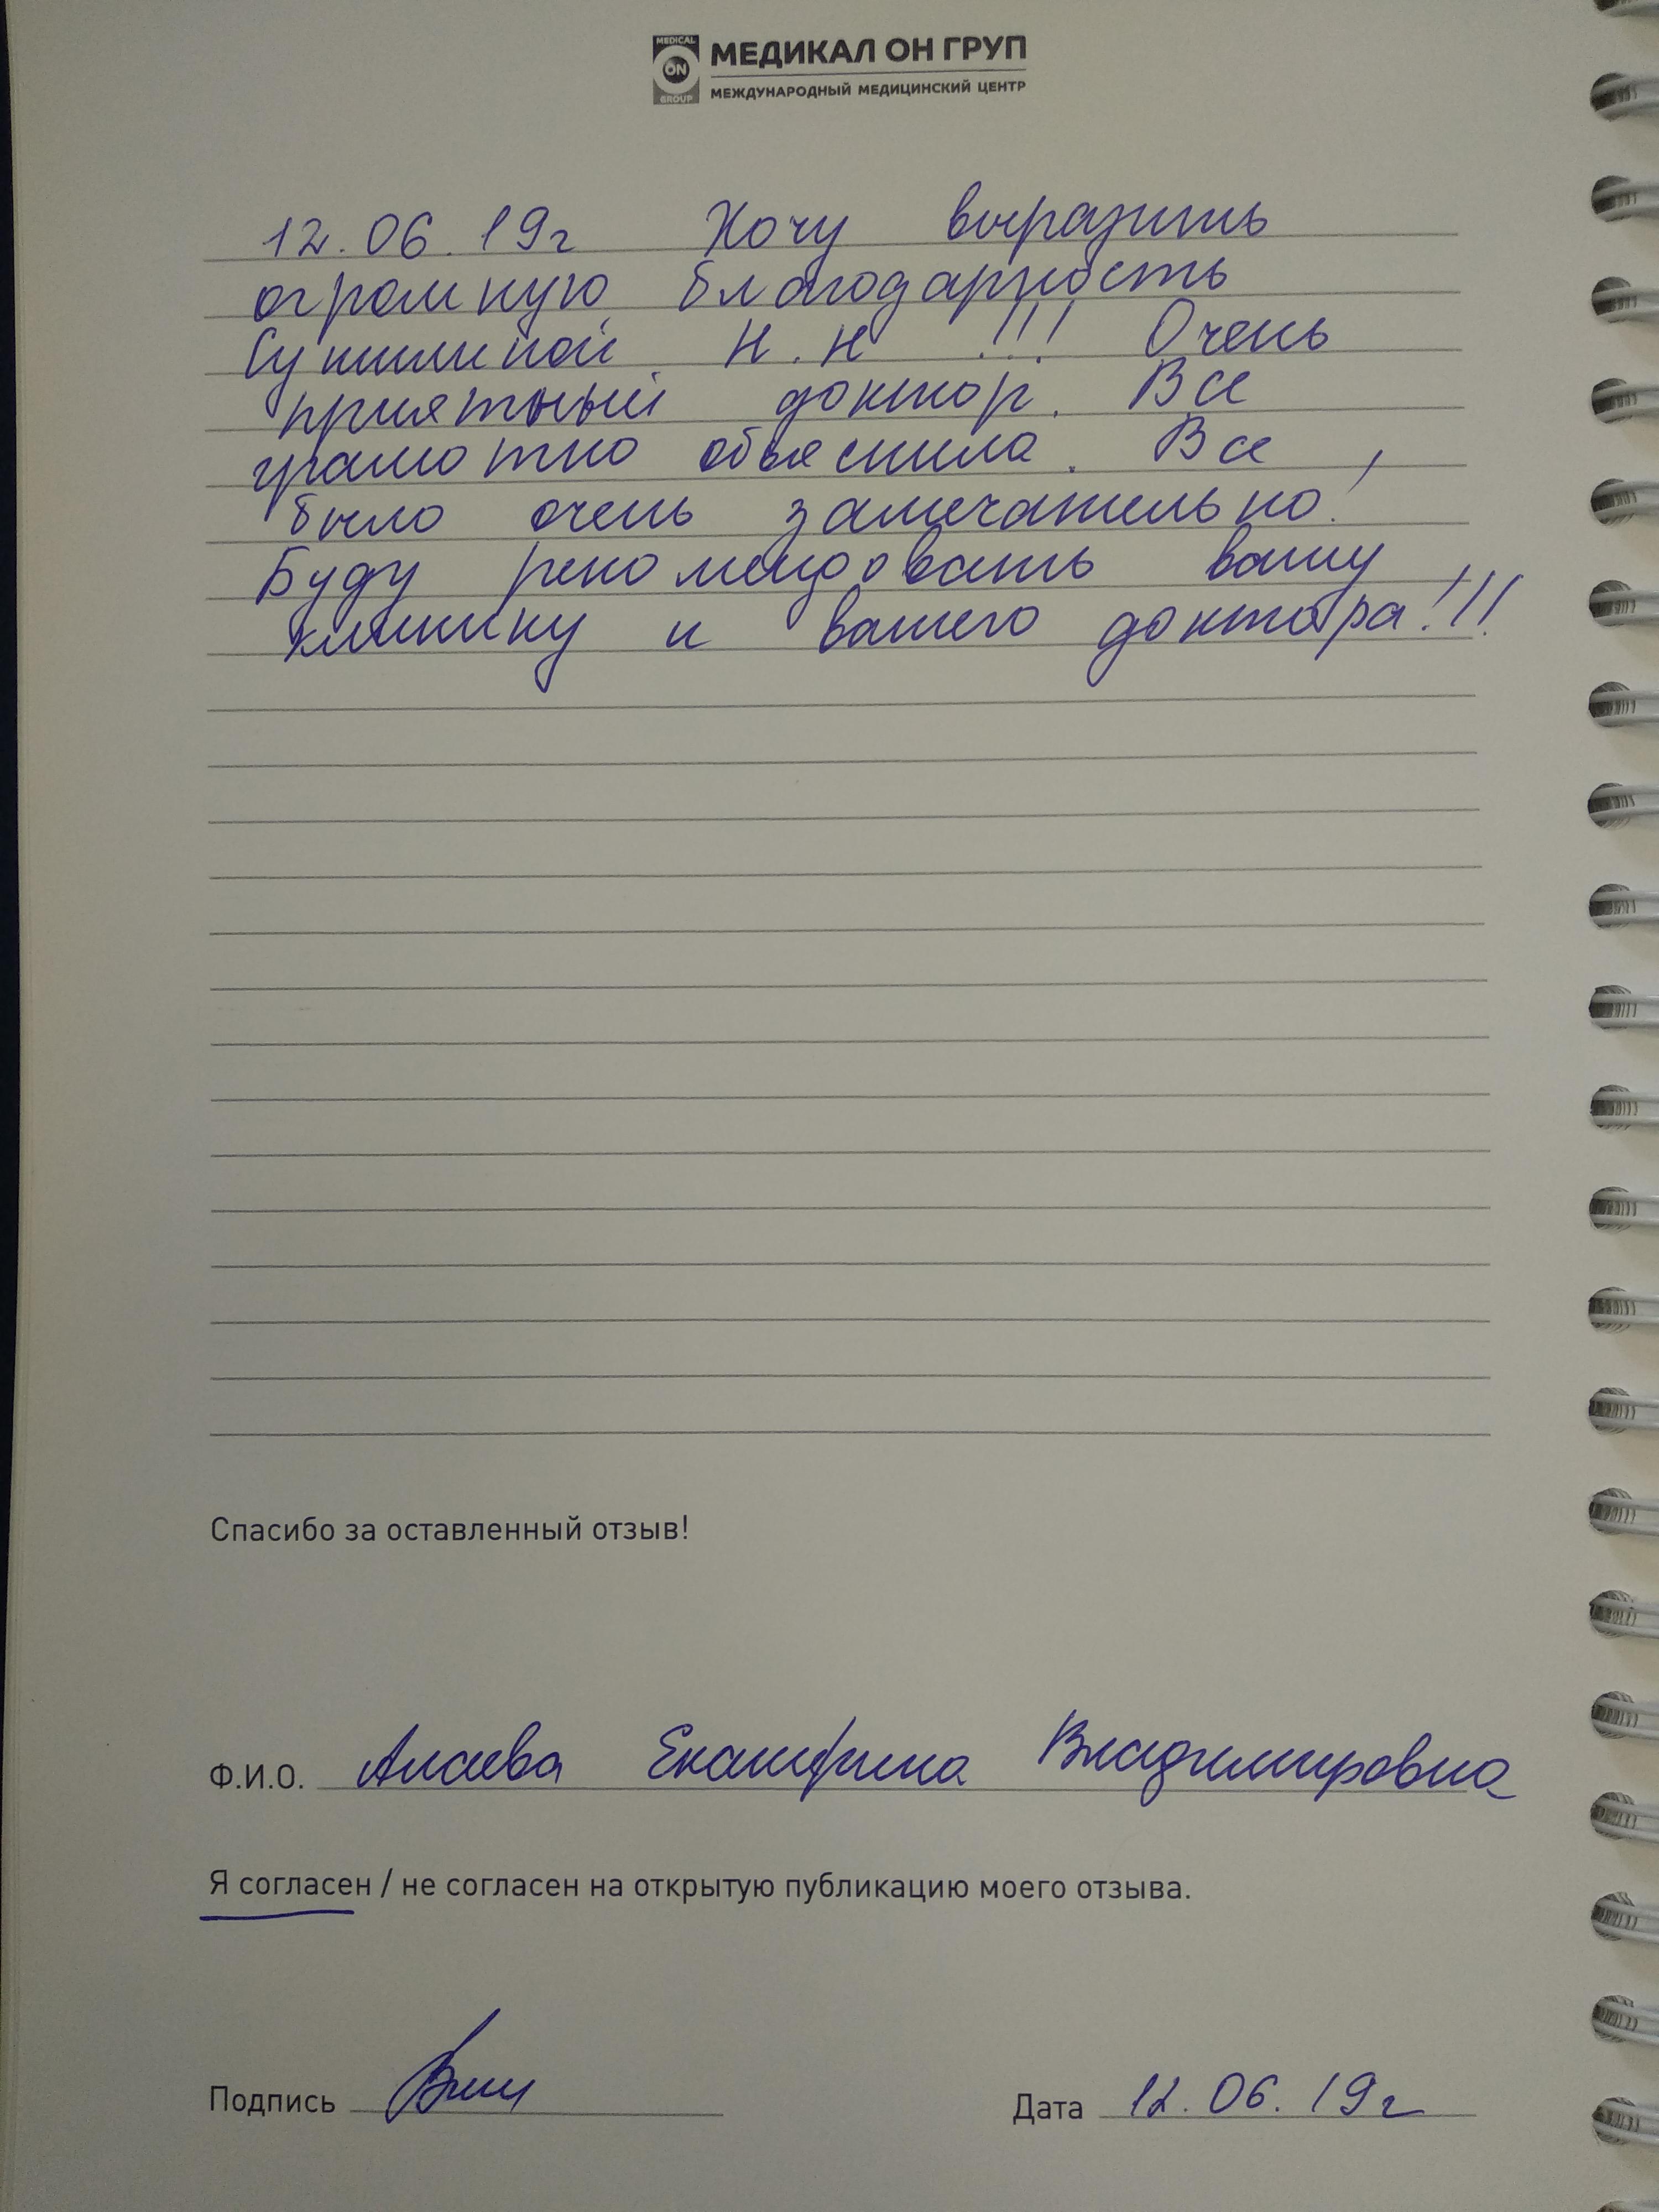 MEDICAL
ON
GROUP
МЕДИКАЛ ОН ГРУП
МЕЖДУНАРОДНЫЙ МЕДИЦИНСКИЙ ЦЕНТР
12.06.19г Хочу выразить
огромную благодарность
Н.Н !!! Очень
приятный доктор. Все
грамотно объяснила. Все
было очень замечательно!
Буду рекомендовать вашу
клинику и вашего доктора!!!
Спасибо за оставленный отзыв!
Ф.И.О. Алаева Екатерина Владимировна
Я согласен / не согласен на открытую публикацию моего отзыва.
Подпись
Дата 12.06.19г